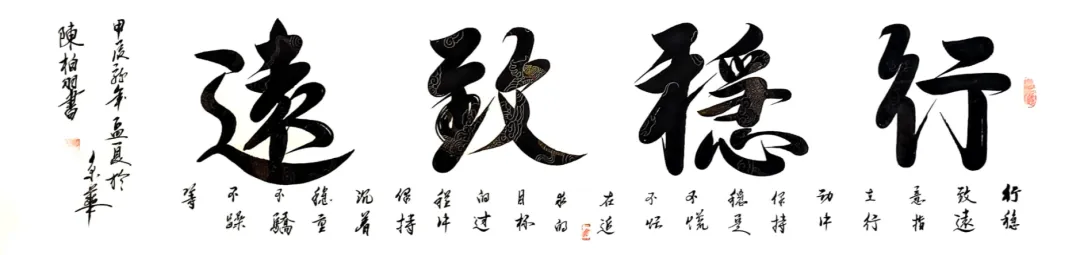 行穩致遠
行穩
致遠
意指
行
动中
保持
穩
不慌
不忙
在追
求的
目标
的过
程中
保持
沉着
穩重
不驕
不躁
等
甲辰龍年孟夏於
京華
陳柏羽書